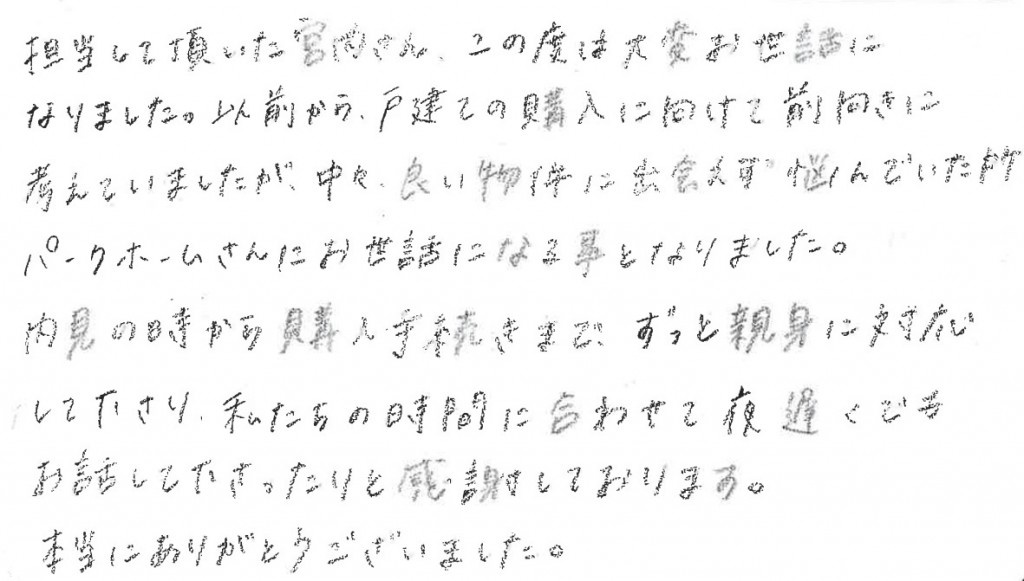 担当して頂いた宮内さん、この度は大変お世話に
なりました。以前から、戸建ての購入に向けて前向きに
考えていましたが、中々、良い物件に出会えず悩んでいた所
パークホームさんにお世話になる事となりました。
内見の時から購入手続きまで、ずっと親身に対応
して下さり、私たちの時間に合わせて夜遅くでも
お話して下さったりと感謝しております。
本当にありがとうございました。